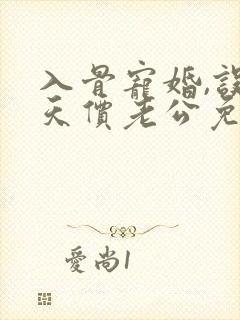 入骨寵婚,誤
天價老公免
愛尚1